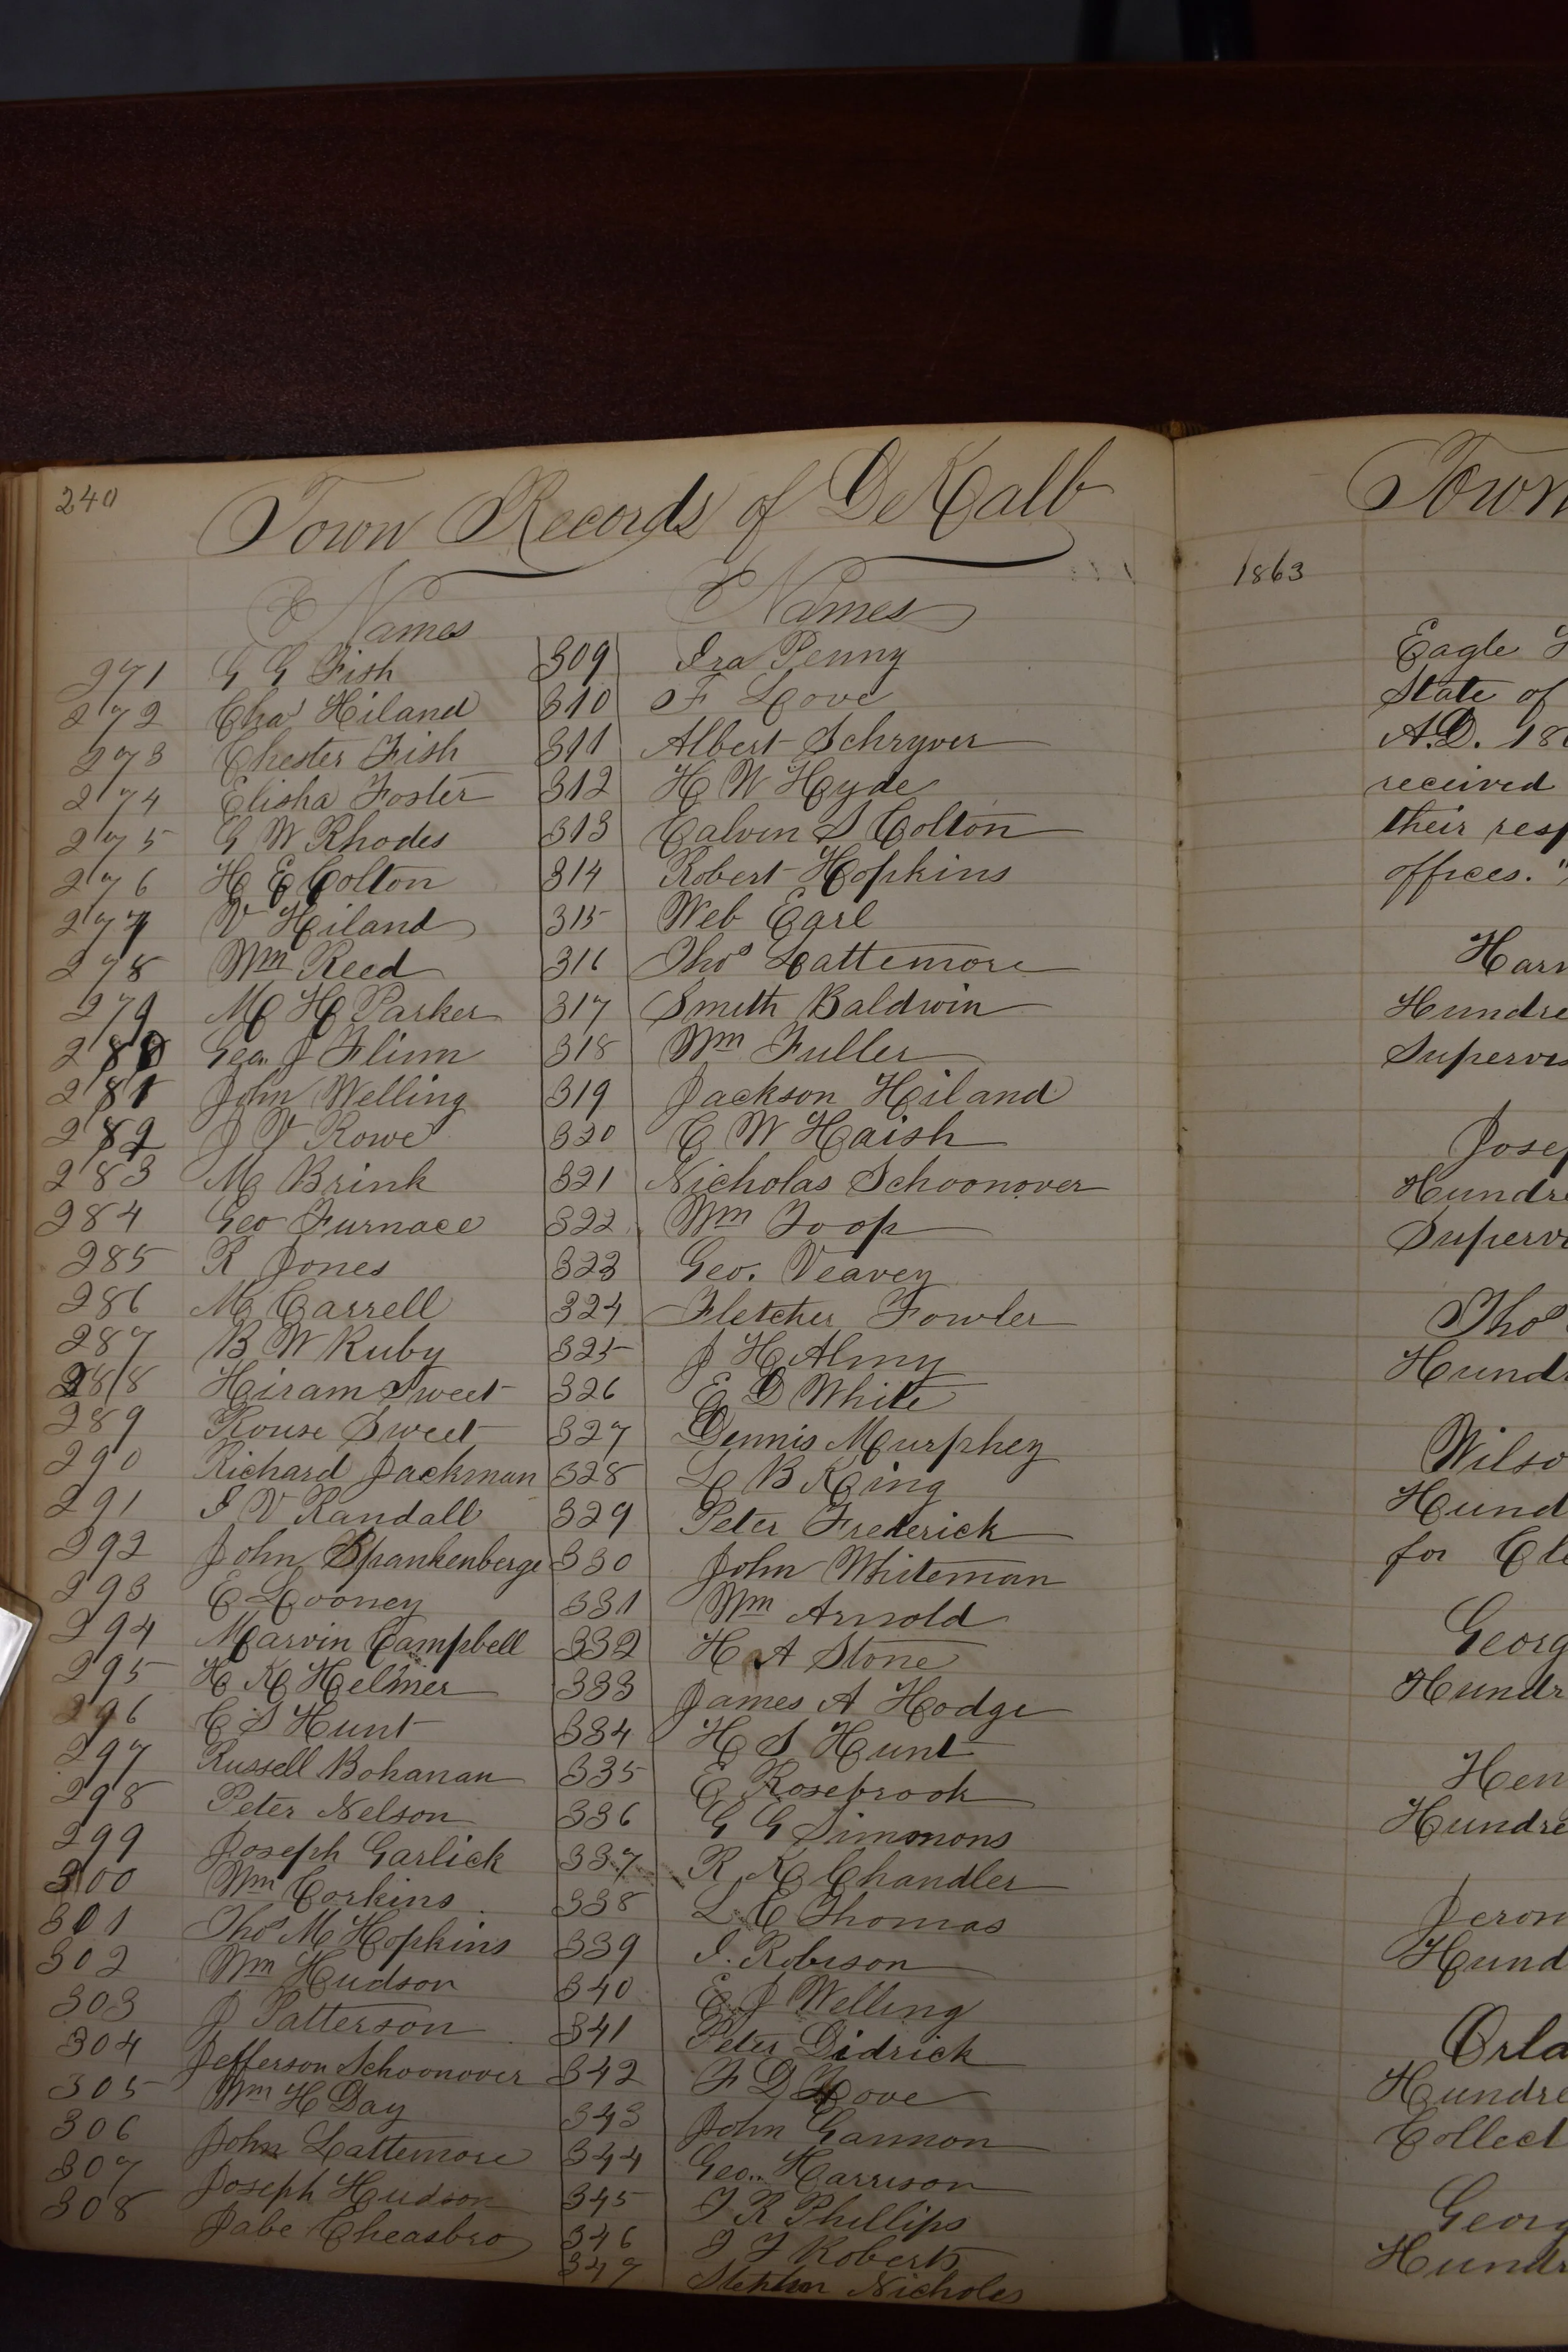 240
Town Records of DeKalb
Names
271 G G Fish
272 Chas Hiland
273 Chester Fish
274 Elisha Foster
275 G W Rhodes
276 H E Colton
277 V Hiland
278 Wm Reed
279 M H Parker
280 Geo. J Flinn
281 John Welling
282 J V Rowe
283 M Brink
284 Geo Furnace
285 R Jones
286 M Carrell
287 B W Ruby
288 Hiram Sweet
289 Rouse Sweet
290 Richard Jackman
291 I V Randall
292 John Spankenberge
293 E Looney
294 Marvin Campbell
295 H K Helmer
296 C S Hunt
297 Russell Bohanan
298 Peter Nelson
299 Joseph Garlick
300 Wm Corkins
301 Thos M Hopkins
302 Wm Hudson
303 J Patterson
304 Jefferson Schoonover
305 Wm H Day
306 John Lattemore
307 Joseph Hudson
308 Jabe Cheasbro
Names
309 Ira Penny
310 F Love
311 Albert Schryver
312 H W Hyde
313 Calvin S Colton
314 Robert Hopkins
315 Web Earl
316 Thos Lattemore
317 Smith Baldwin
318 Wm Fuller
319 Jackson Hiland
320 C W Haish
321 Nicholas Schoonover
322 Wm Toop
323 Geo. Veavey
324 Fletcher Fowler
325 J H Almy
326 E D White
327 Dennis Murphey
328 L B King
329 Peter Frederick
330 John Whiteman
331 Wm Arnold
332 H A Stone
333 James A Hodge
334 H S Hunt
335 E Rosebrook
336 G G Simonons
337 R K Chandler
338 L C Thomas
339 I. Robison
340 E J Welling
341 Peter Didrick
342 F D Love
343 John Gannon
344 Geo.. Harrison
345 J R Phillips
346 J F Roberts
347 Stephen Nicholes
Town
1863
Eagle
State of
A.D. 18
received
their resp
offices."
Harr
Hundre
Supervis
Josep
Hundre
Supervi
Thos
Hundr
Wilso
Hund
for Cle
Georg
Hundr
Hen
Hundre
Jerom
Hund
Orla
Hundre
Collect
Georg
Hundr